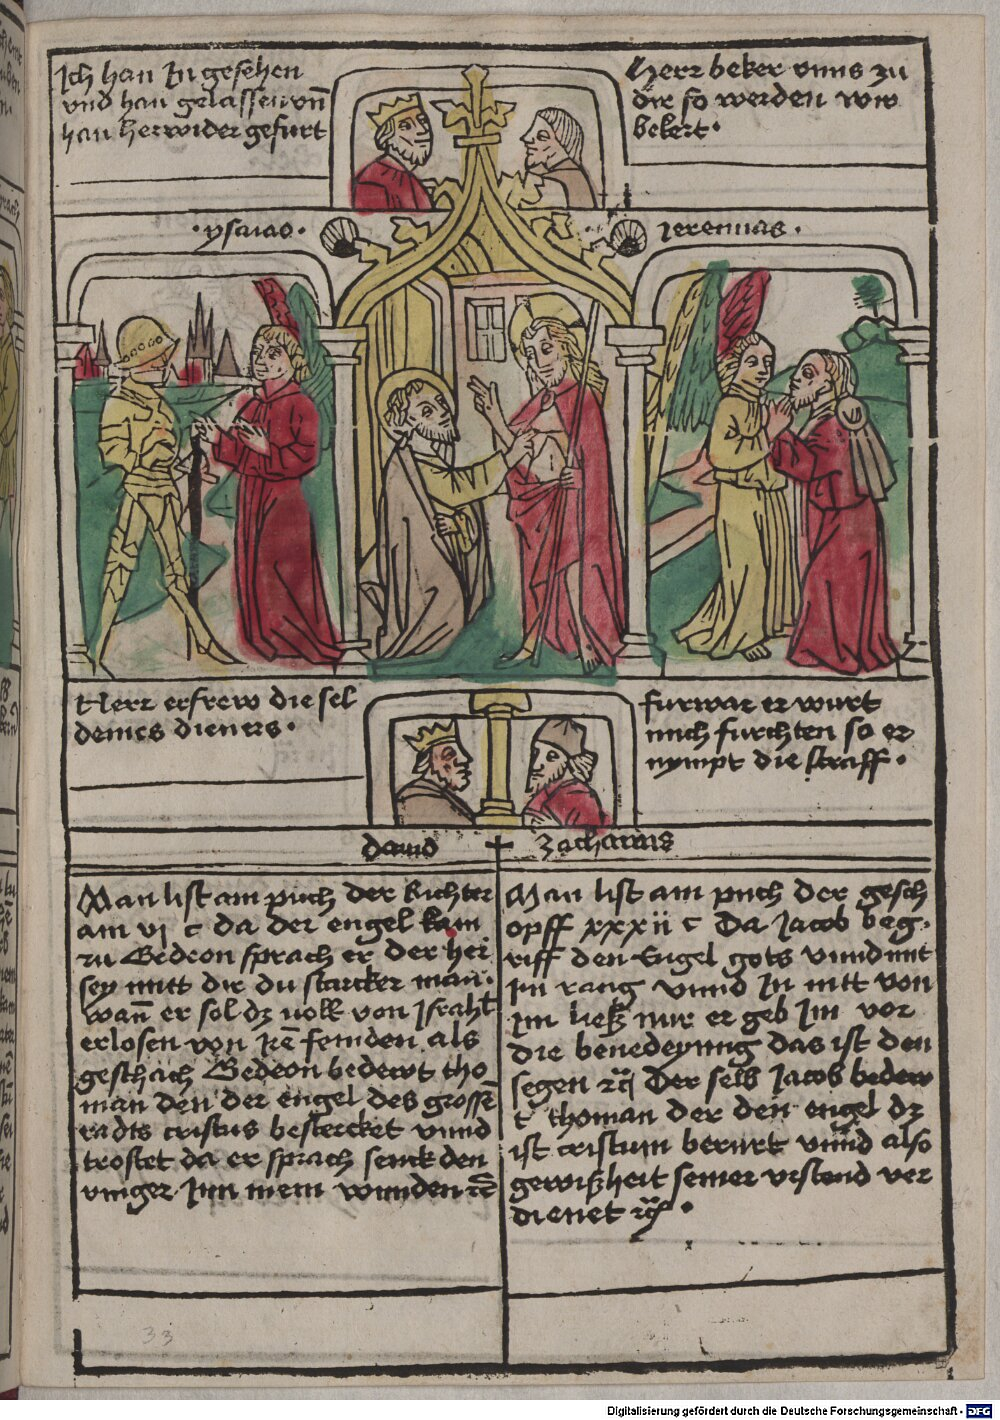 Ich han In gesehen
vnd han gelassen vn̄
han herwider gefurt
Herr beker vnns zu
dir so werden wir
bekert ·
· ysaias ·
Jeremias ·
Herr erfrew die sel
deines dieners ·
furwar er wurt
mich furchten so er
nympt die straff ·
dauid
zacharias
Man list am puch der Richter
am vj c da der engel kam
zu Gedeon sprach er der her
sey mitt dir du starcker man ·
wan̄ er sol dz volk von Israhel
erlosen von irē feinden als
geschach Gedeon bedewt tho
man den der engel des grossē
radts cristus bestercket vnnd
trostet da er sprach senck den
vinger Inn mein wunden rc̄
Man list am puch der gesch
opff xxxii c Da Jacob beg·
riff den Engel gots vnnd mit
Im rang vnnd In nitt von
Im liesz nur er geb Im vor
die benedeyung das ist den
segen rc̄ Der selb Jacob bedew
t thoman der den engel dz
ist cristum berurt vnnd also
gewiszheit seiner vrstend ver
dienet rc̄ ·
33
Digitalisierung gefördert durch die Deutsche Forschungsgemeinschaft - DFG